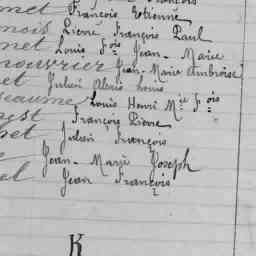 François
met François Etienne
mois Pierre François Paul
net Louis Fois Jean-Marie
nouvrier Jean-Marie Ambroise
et Julien Alexis Louis
eaume Louis Henri Mie Fois
est François Pierre
net Julien François
Jean-Marie Joseph
Jean François
K